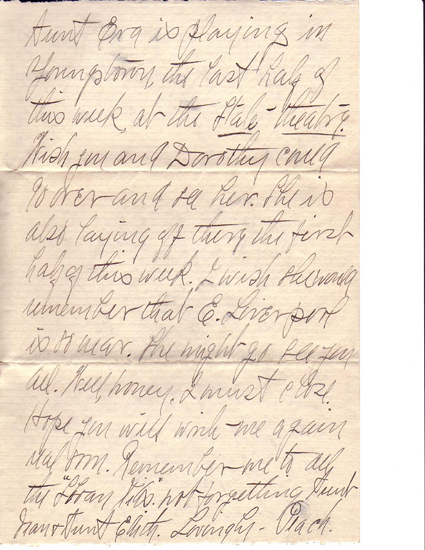 Aunt Eva is playing in
Youngstown, the last half of
this week, at the State-theatre.
Wish you and Dorothy could
go over and see her. She is
also laying off there the first
half of this week. I wish she would
remember that E. Liverpool
is so near. She might go see you
all. Well, honey, I must close.
Hope you will write me again
real soon. Remember me to all
the not forgetting Aunt
Aunt Edith. Lovingly- Peach.